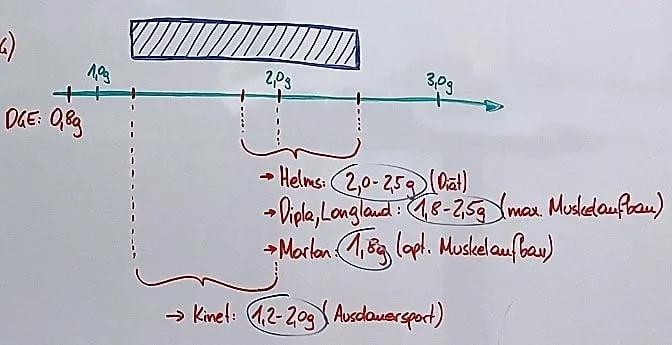 G)
1,0g 2,0g 3,0g
DGE: 0,8g
→ Helms: 2,0-2,5g (Diät)
→ Dipla, Longland: 1,8-2,5g (max. Muskelaufbau)
→ Morton: 1,8g (opt. Muskelaufbau)
→ Kinet: 1,2-2,0g (Ausdauersport)